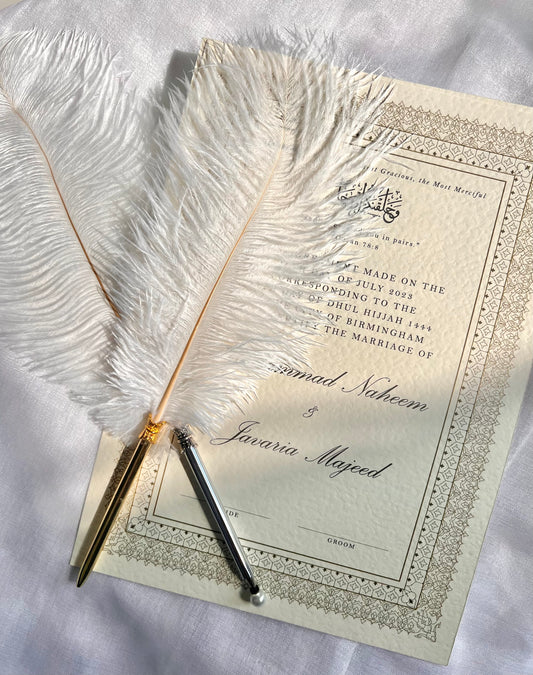 st Gracious, the Most Merciful
you in pairs."
an 78:8
MENT MADE ON THE
OF JULY 2023
RRESPONDING TO THE
OF DHUL HIJJAH 1444
Y OF BIRMINGHAM
THE MARRIAGE OF
mmad Naheem
&
Javaria Majeed
DE
GROOM